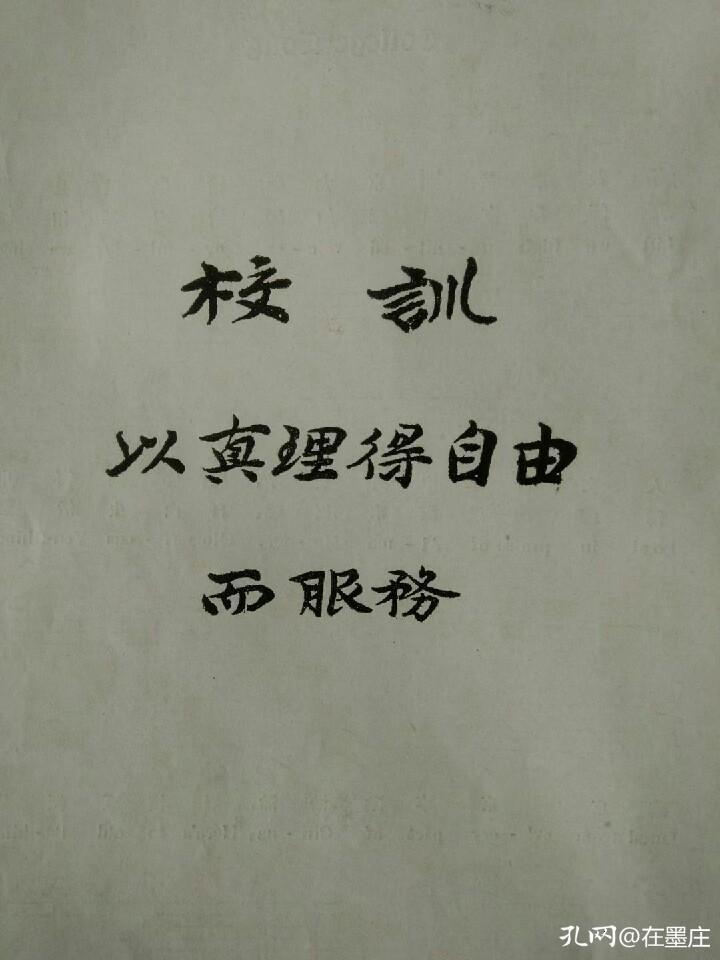 校訓
以真理得自由
而服務
孔网@在墨庄